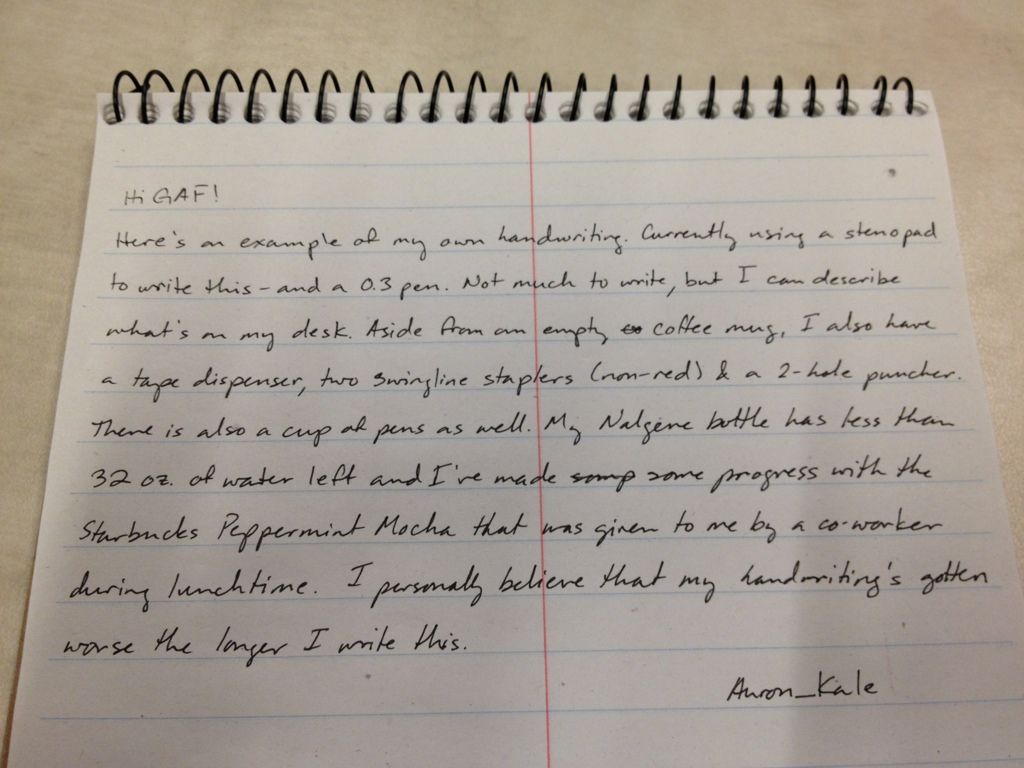 Hi GAF!
Here's an example of my own handwriting. Currently using a stenopad
to write this - and a 0.3 pen. Not much to write, but I can describe
what's on my desk. Aside from an empty co coffee mug, I also have
a tape dispenser, two swingline staplers (non-red) & a 2-hole puncher.
There is also a cup of pens as well. My Nalgene bottle has less than
32 oz. of water left and I've made somp some progress with the
Starbucks Peppermint Mocha that was given to me by a co-worker
during lunchtime. I personally believe that my handwriting's gotten
worse the longer I write this.
Auron_Kale